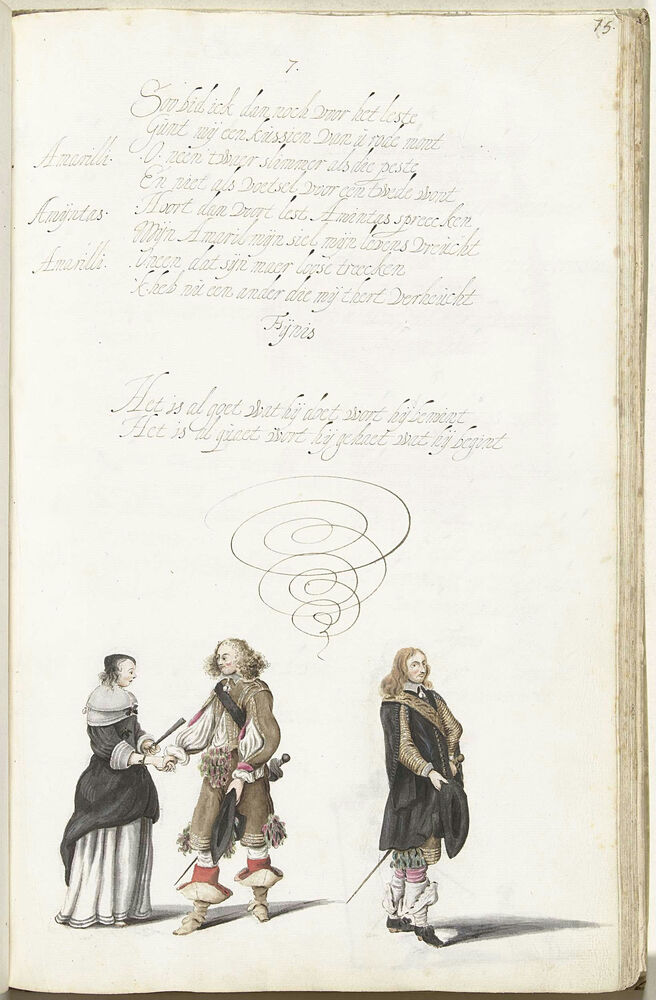 75.
7.
Soo bid ick dan noch voor het leste
Gunt mij een kussien van u rode mont
Amarilli. O: neen 't waer slimmer als die peste
En niet als voetsel voor een twede wont
Amÿntas. Hoort dan voort lest Amintas spreecken
Mijn Amaril mijn siel mijn levens vreucht
Amarilli. O neen dat sijn maer loose treecken
'k heb nu een ander die mij thert verheucht
Fÿnis
Het is al goet wat hij doet, wort hij bemint
Het is al quaet wort hij gehaet, wat hij begint